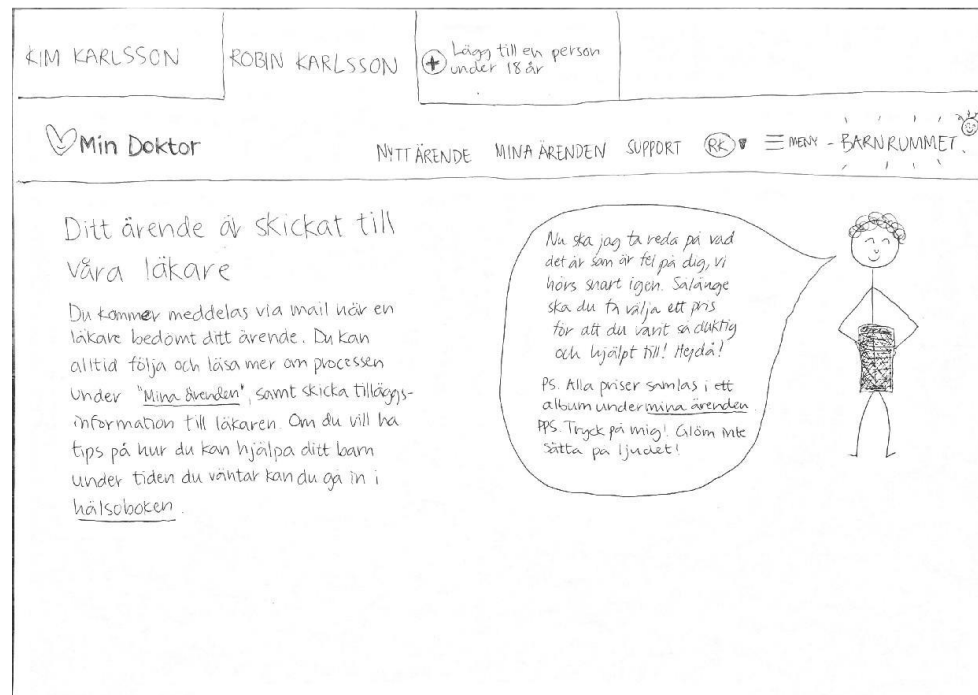 KIM KARLSSON
ROBIN KARLSSON
+ Lägg till en person
under 18 år
Min Doktor
NYTT ÄRENDE MINA ÄRENDEN SUPPORT RK MENY - BARNRUMMET
Ditt ärende är skickat till
våra läkare
Du kommer meddelas via mail när en
läkare bedömt ditt ärende. Du kan
alltid följa och läsa mer om processen
under "Mina ärenden", samt skicka tilläggs-
information till läkaren. Om du vill ha
tips på hur du kan hjälpa ditt barn
under tiden du väntar kan du gå in i
hälsoboken.
Nu ska jag ta reda på vad
det är som är fel på dig, vi
hörs snart igen. Sålänge
ska du få välja ett pris
för att du varit så duktig
och hjälpt till! Hejdå!
PS. Alla priser samlas i ett
album under mina ärenden
PPS. Tryck på mig! Glöm inte
sätta på ljudet!